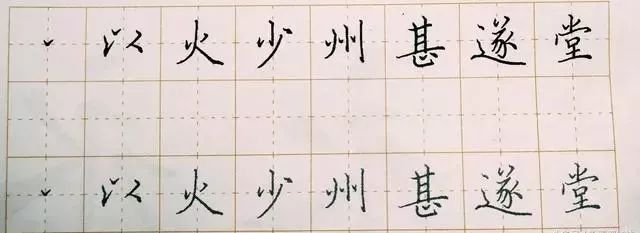 丶以火少州甚遂堂
丶以火少州甚遂堂